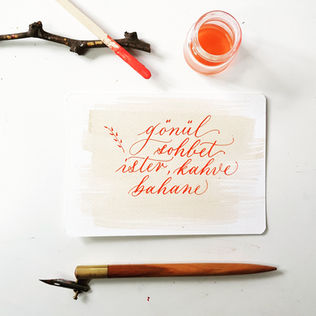 gönül
sohbet
ister, kahve
bahane